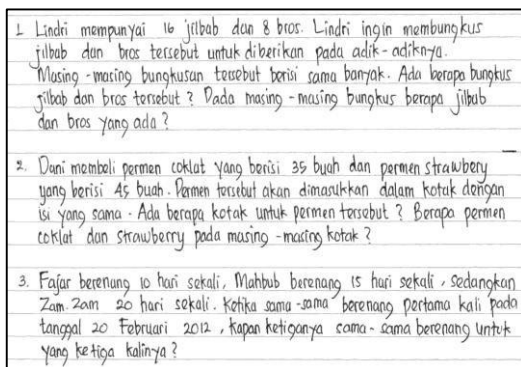 1 Lindri mempunyai 16 jilbab dan 8 bros. Lindri ingin membungkus
jilbab dan bros tersebut untuk diberikan pada adik-adiknya.
Masing-masing bungkusan tersebut berisi sama banyak. Ada berapa bungkus
jilbab dan bros tersebut? Pada masing-masing bungkus berapa jilbab
dan bros yang ada?
2. Dani membeli permen coklat yang berisi 35 buah dan permen strawbery
yang berisi 45 buah. Permen tersebut akan dimasukkan dalam kotak dengan
isi yang sama. Ada berapa kotak untuk permen tersebut? Berapa permen
coklat dan strawberry pada masing-masing kotak?
3. Fajar berenang 10 hari sekali, Mahbub berenang 15 hari sekali, sedangkan
Zam.Zam 20 hari sekali. Ketika sama-sama berenang pertama kali pada
tanggal 20 Februari 2012, kapan ketiganya sama-sama berenang untuk
yang ketiga kalinya?